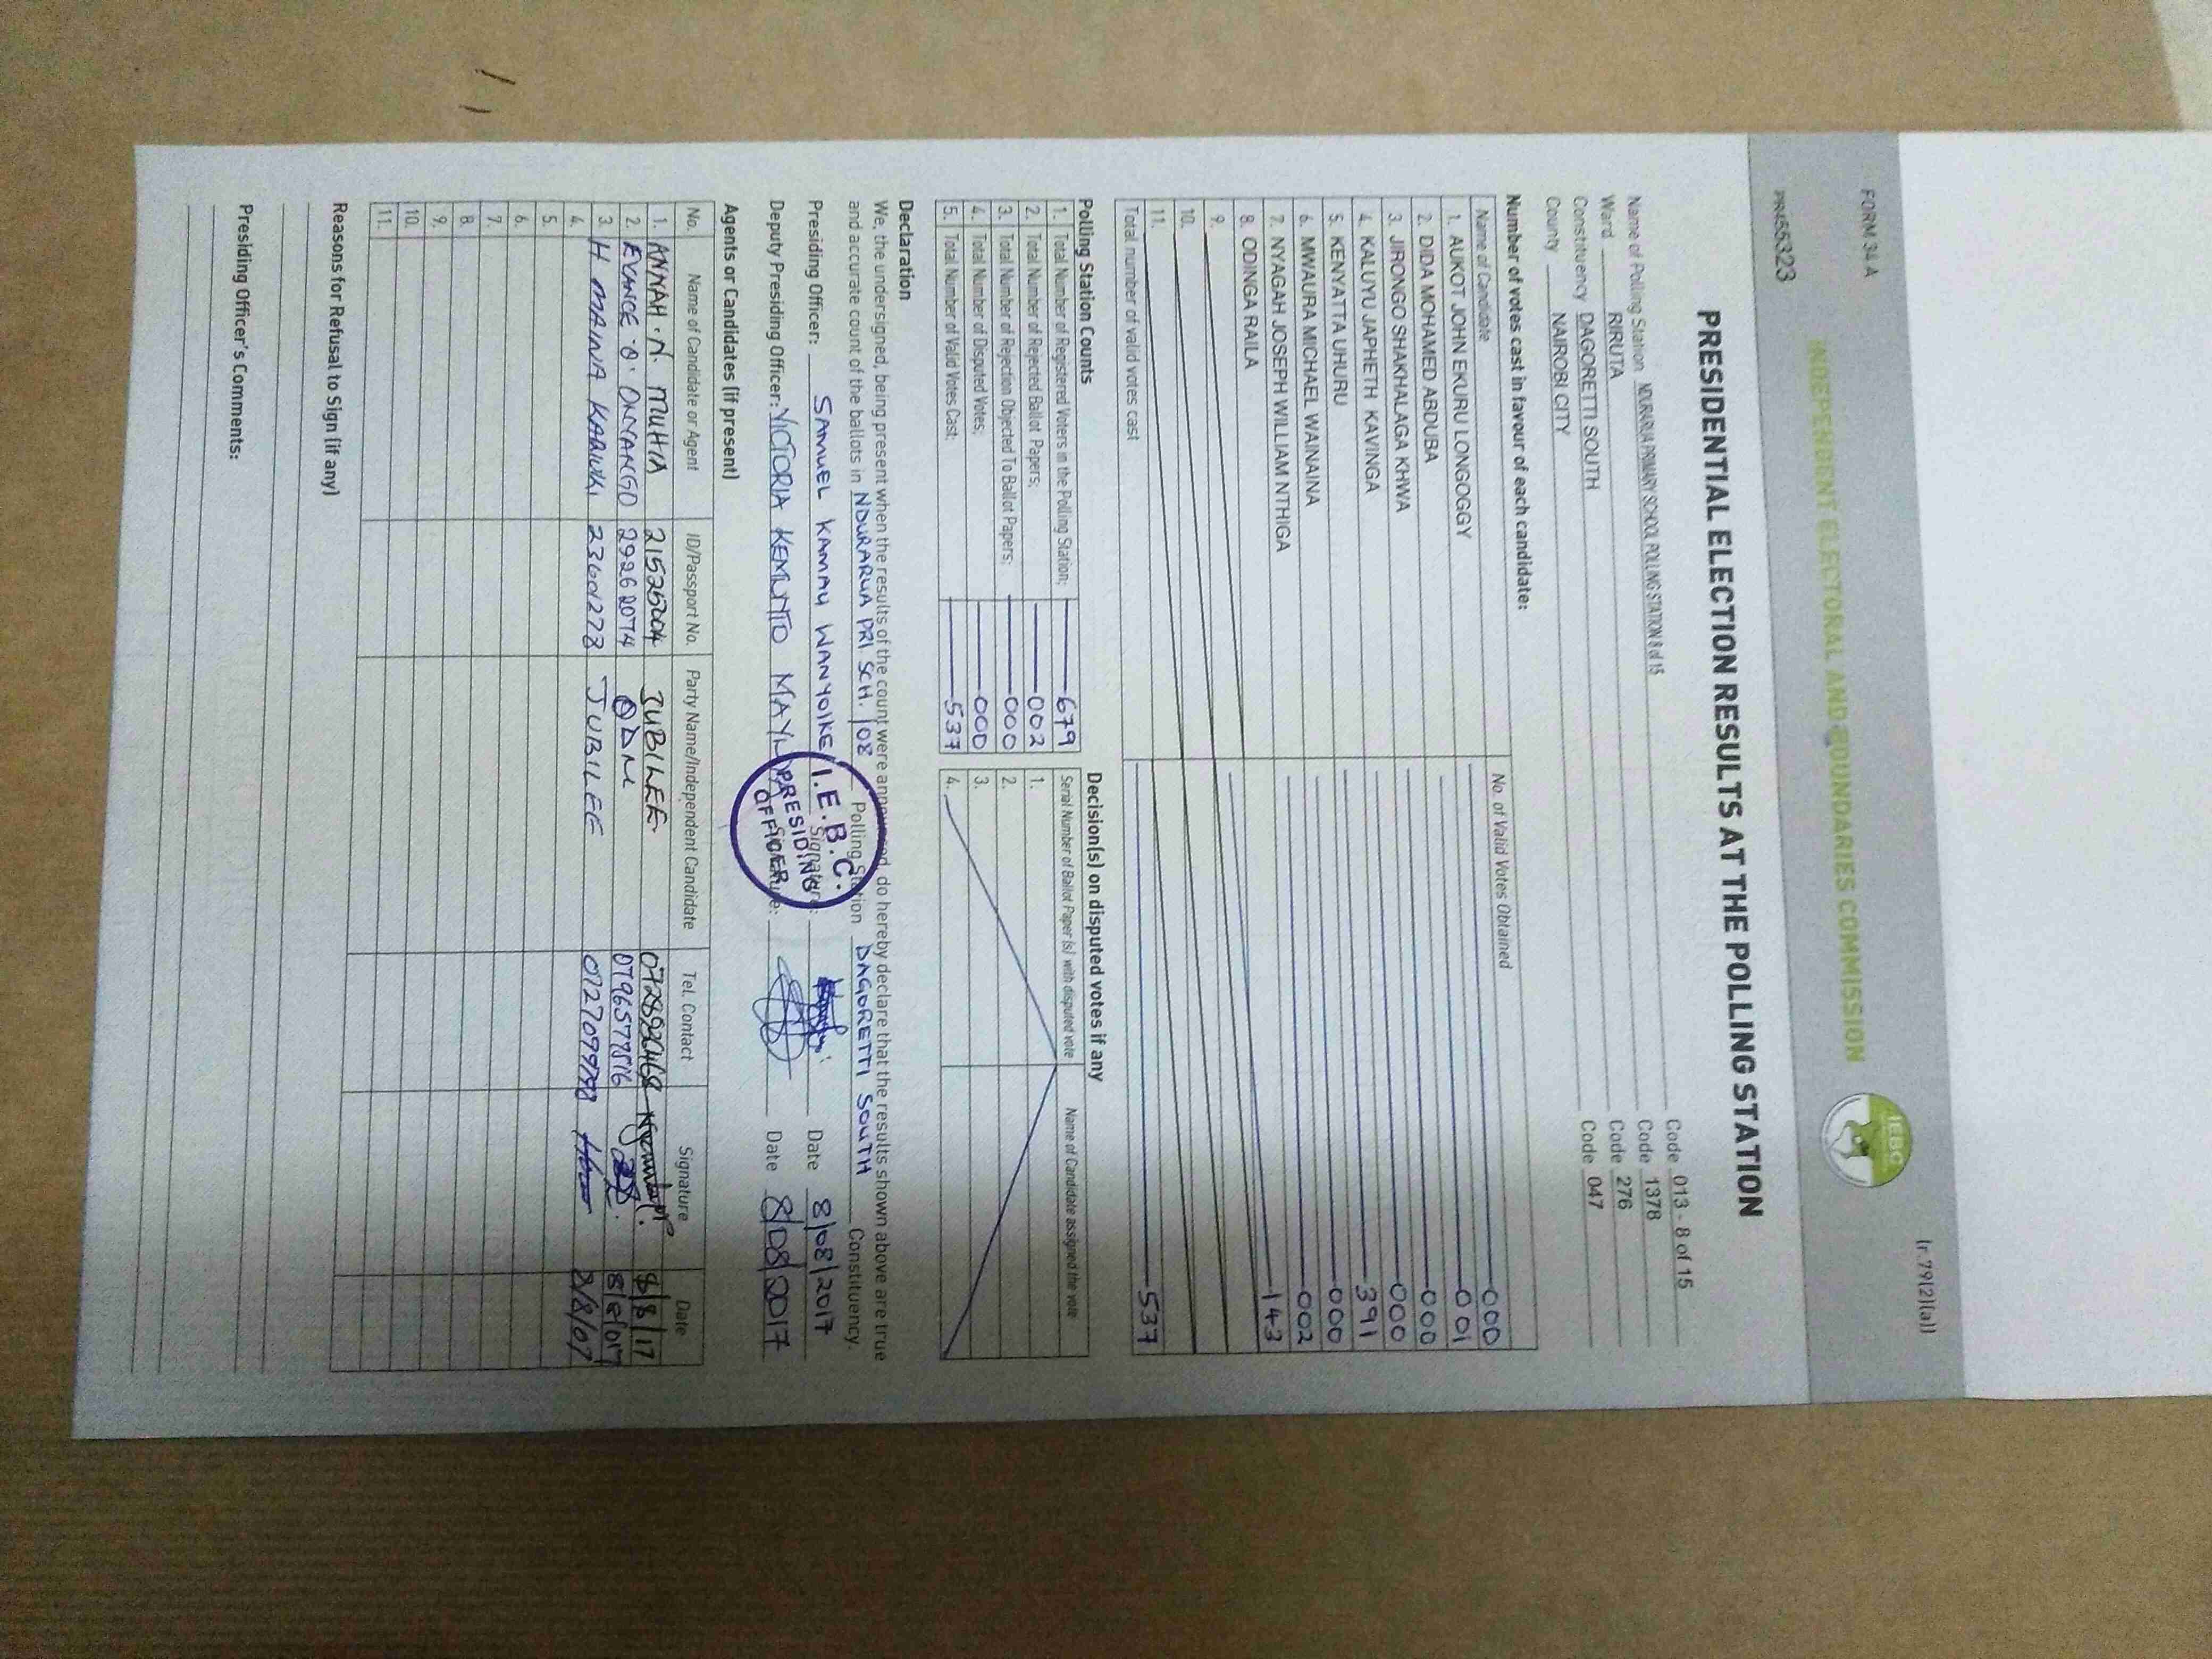 FORM 34 A
(r.79(2)(a))
INDEPENDENT ELECTORAL AND BOUNDARIES COMMISSION
IEBC
PR455323
PRESIDENTIAL ELECTION RESULTS AT THE POLLING STATION
Name of Polling Station NDURARUA PRIMARY SCHOOL POLLING STATION 8 of 15 Code 013 - 8 of 15
Ward RIRUTA Code 1378
Constituency DAGORETTI SOUTH Code 276
County NAIROBI CITY Code 047
Number of votes cast in favour of each candidate:
Name of Candidate No. of Valid Votes Obtained
1. AUKOT JOHN EKURU LONGOGGY 000
2. DIDA MOHAMED ABDUBA 001
3. JIRONGO SHAKHALAGA KHWA 000
4. KALUYU JAPHETH KAVINGA 000
5. KENYATTA UHURU 391
6. MWAURA MICHAEL WAINAINA 000
7. NYAGAH JOSEPH WILLIAM NTHIGA 002
8. ODINGA RAILA 143
9.
10.
11.
Total number of valid votes cast 537
Polling Station Counts
1. Total Number of Registered Voters in the Polling Station; 679
2. Total Number of Rejected Ballot Papers; 002
3. Total Number of Rejection Objected To Ballot Papers; 000
4. Total Number of Disputed Votes; 000
5. Total Number of Valid Votes Cast; 537
Decision(s) on disputed votes if any
Serial Number of Ballot Paper (s) with disputed vote Name of Candidate assigned the vote
1.
2.
3.
4.
Declaration
We, the undersigned, being present when the results of the count were announced, do hereby declare that the results shown above are true
and accurate count of the ballots in NDURARUA PRI. SCH. /08 Polling Station DAGORETTI SOUTH Constituency.
Presiding Officer: SAMUEL KAMAU WANYOIKE Signature: Date 8/08/2017
Deputy Presiding Officer: VICTORIA KEMUNTO Signature: Date 8/08/2017
I.E.B.C.
PRESIDING
OFFICER
Agents or Candidates (if present)
No. Name of Candidate or Agent ID/Passport No. Party Name/Independent Candidate Tel. Contact Signature Date
1. ANNAH. N. MUHIA 21525004 JUBILEE 8/8/17
2. EVANCE .O. ONYANGO 29262074 ODM 8/8/017
3. H MAINA KARIUKI 23601278 JUBILEE 8/8/07
4.
5.
6.
7.
8.
9.
10.
11.
Reasons for Refusal to Sign (if any)
Presiding Officer's Comments: